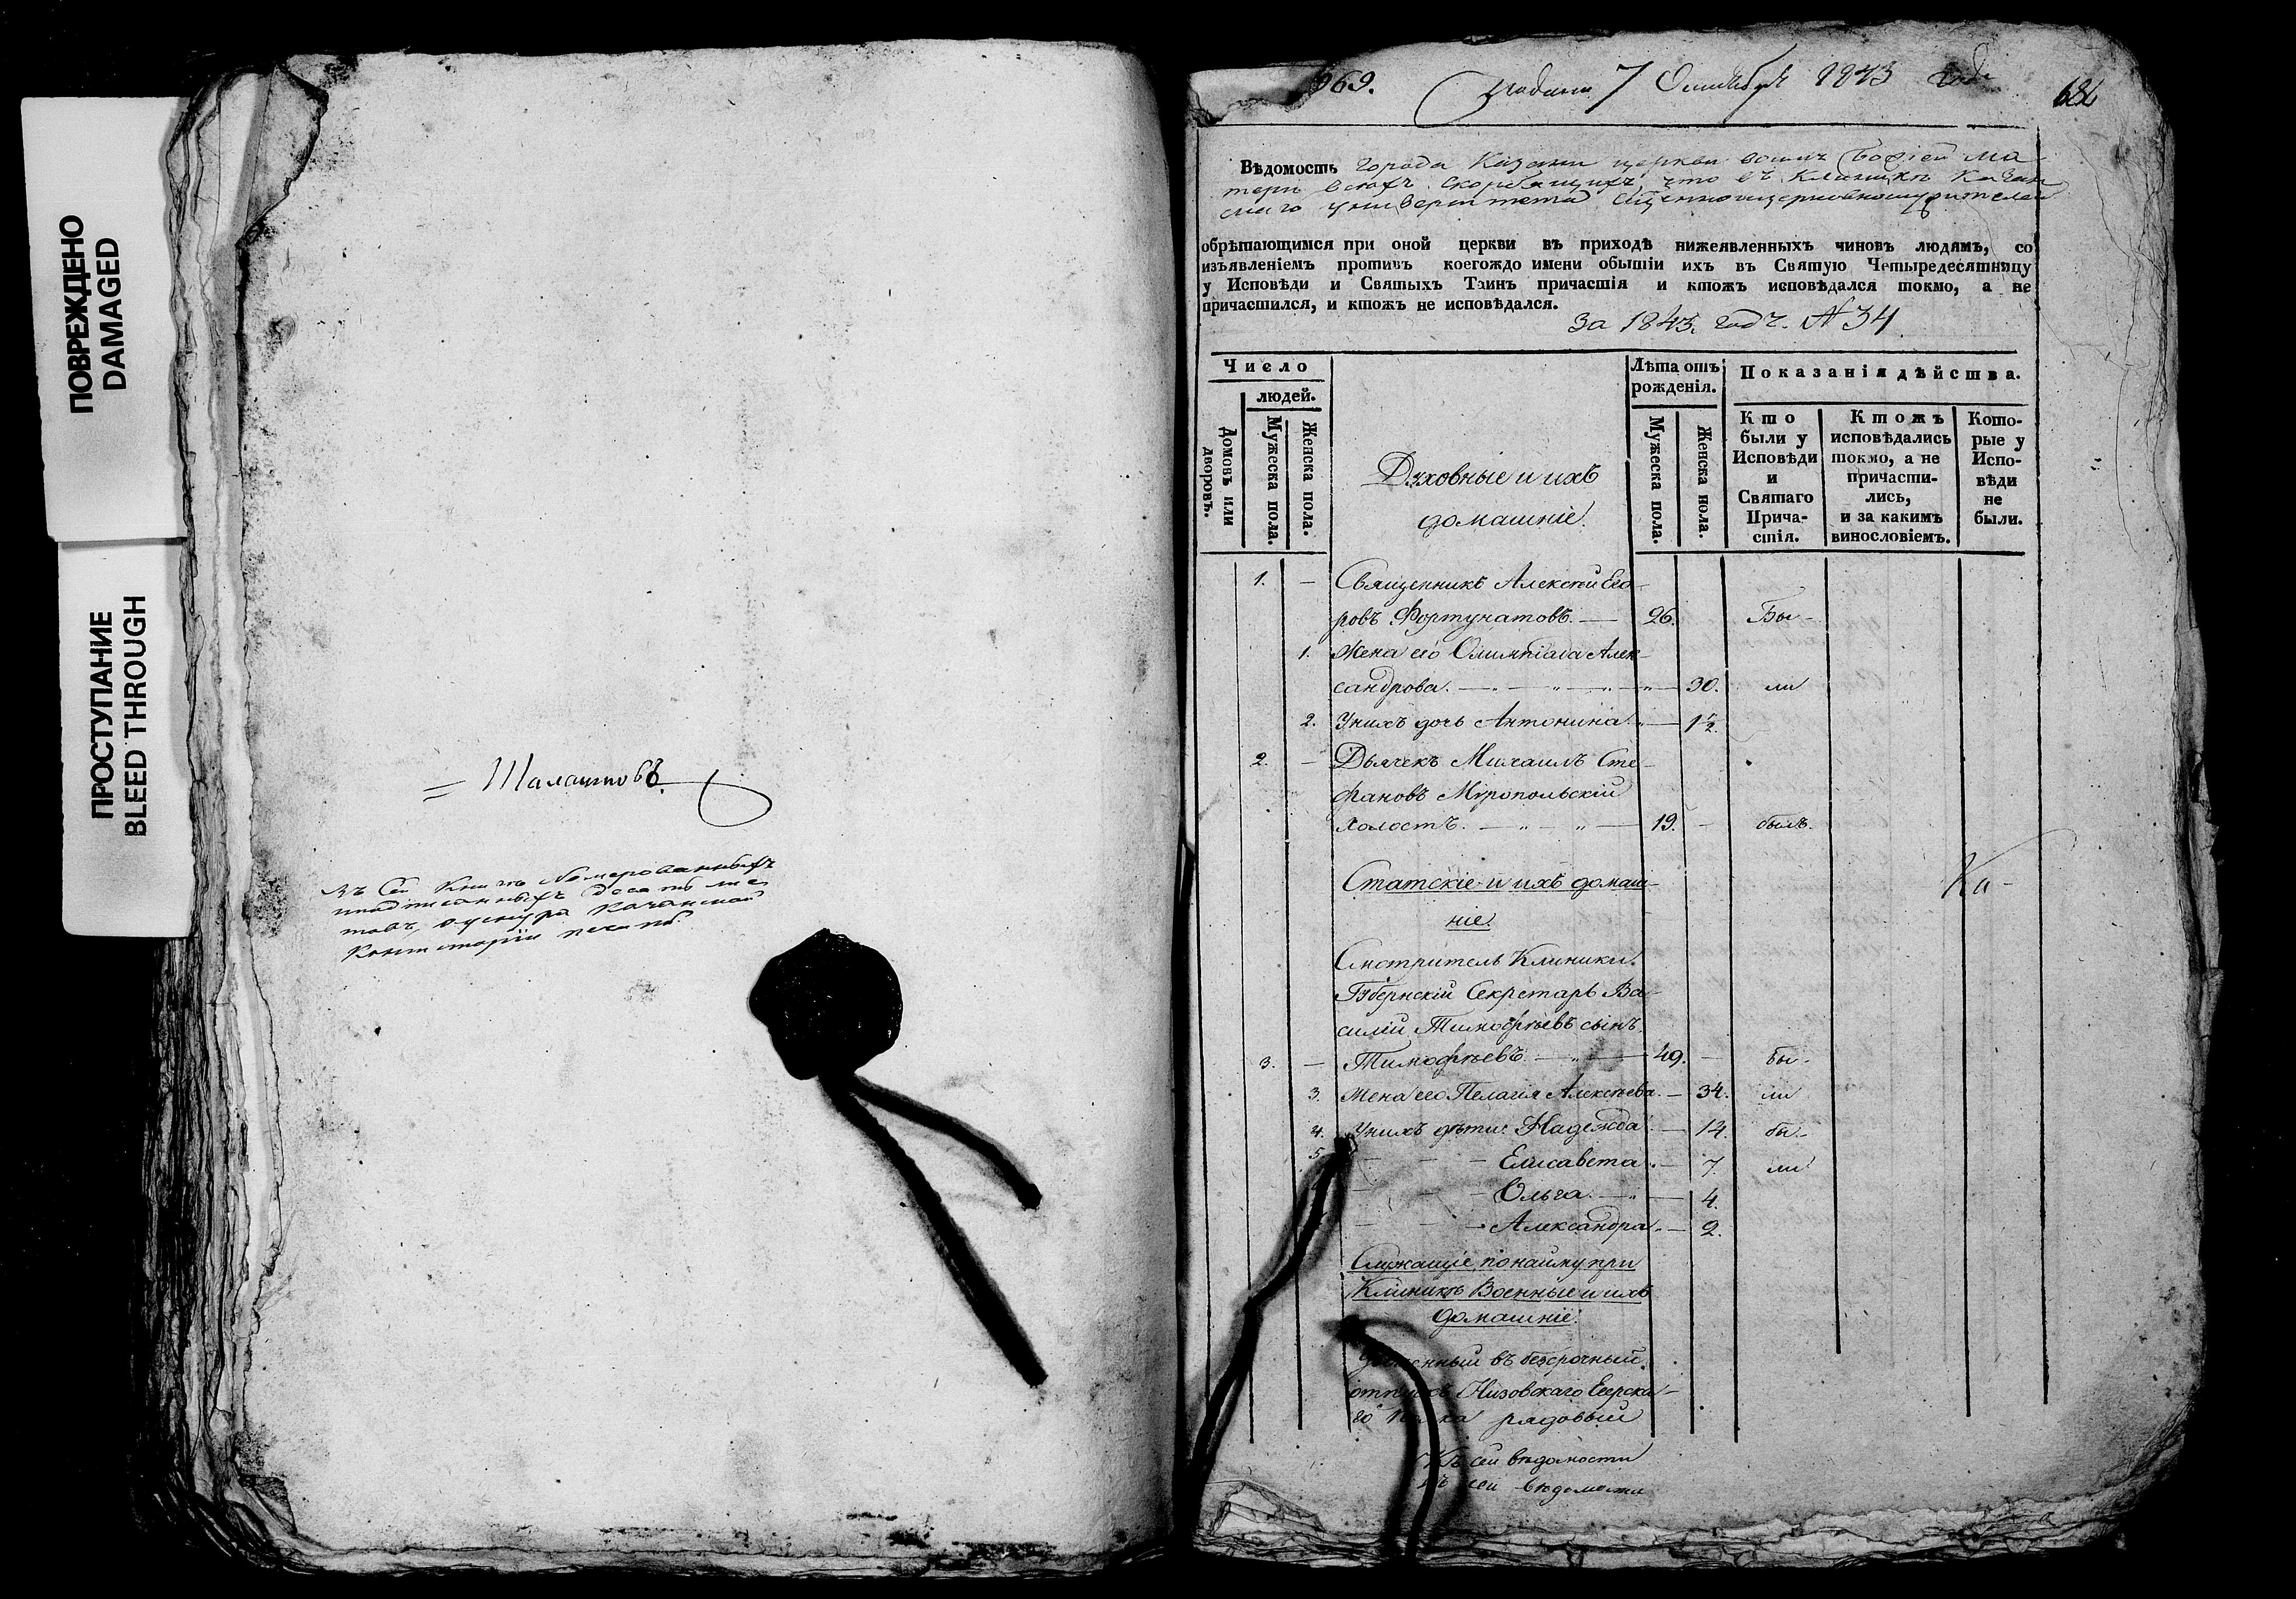 ПОВРЕЖДЕНО
DAMAGED
ПРОСТУПАНИЕ
BLEED THROUGH
Шалашновъ
Въ сей книгѣ номерованныхъ
подписанныхъ десять лис
товъ, оу шнура Казанской
Консисторіи печать.
969.
Подана 7 Октября 1843 года
686
Вѣдомость города Казани церкви Божіей Ма-
тери всѣхъ скорбящихъ, что въ Клиникѣ Казан
скаго университета священноцерковнослужителей
обрѣтающимся при оной церкви въ приходѣ нижеявленныхъ чиновъ людямъ, со
изъявленіемъ противъ коегождо имени обытіи ихъ въ Святую Четыредесятницу
у Исповѣди и Святыхъ Таинъ причастія и ктожъ исповѣдался токмо, а не
причастился, и ктожъ не исповѣдался.
За 1843 годъ. № 34
Число
людей.
Домовъ или дворовъ.
Мужеска пола.
Женска пола.
Духовные и ихъ
домашніе.
Лѣта отъ
рожденія.
Мужеска пола.
Женска пола.
Показанія дѣйства.
Кто
были у
Исповѣди
и
Святаго
Прича-
стія.
Ктожъ
исповѣдались
токмо, а не
причасти-
лись,
и за какимъ
винословіемъ.
Кото-
рые у
Испо-
вѣди
не
были.
1. — Священникъ Алексѣй Его-
ровъ Фортунатовъ. — 26. Бы-
1. Жена его Олимпіада Алек-
сандрова. — 30. ли
2. У нихъ дочь Антонина. — 1½.
2. — Дьячекъ Михаилъ Сте-
фановъ Миропольскій
холостъ. — 19. — былъ.
Статскіе и ихъ домаш-
ніе.
Ка-
Смотритель Клиники.
Губернскій Секретарь Ва-
силій Тимофѣевъ сынъ
3. — Тимофѣевъ. — 49. — бы-
3. Жена его Пелагія Алексѣева. — 34. ли
4. У нихъ дѣти: Надежда — 14. бы-
5. — Елисавета. — 7. ли
— Ольга. — 4.
— Александра. — 2.
Служащіе по найму при
Клиникѣ Военные и ихъ
домашніе:
въ безсрочный
отпускъ Низовскаго Егерска-
го полка рядовый
Къ сей вѣдомости
Къ сей вѣдомости